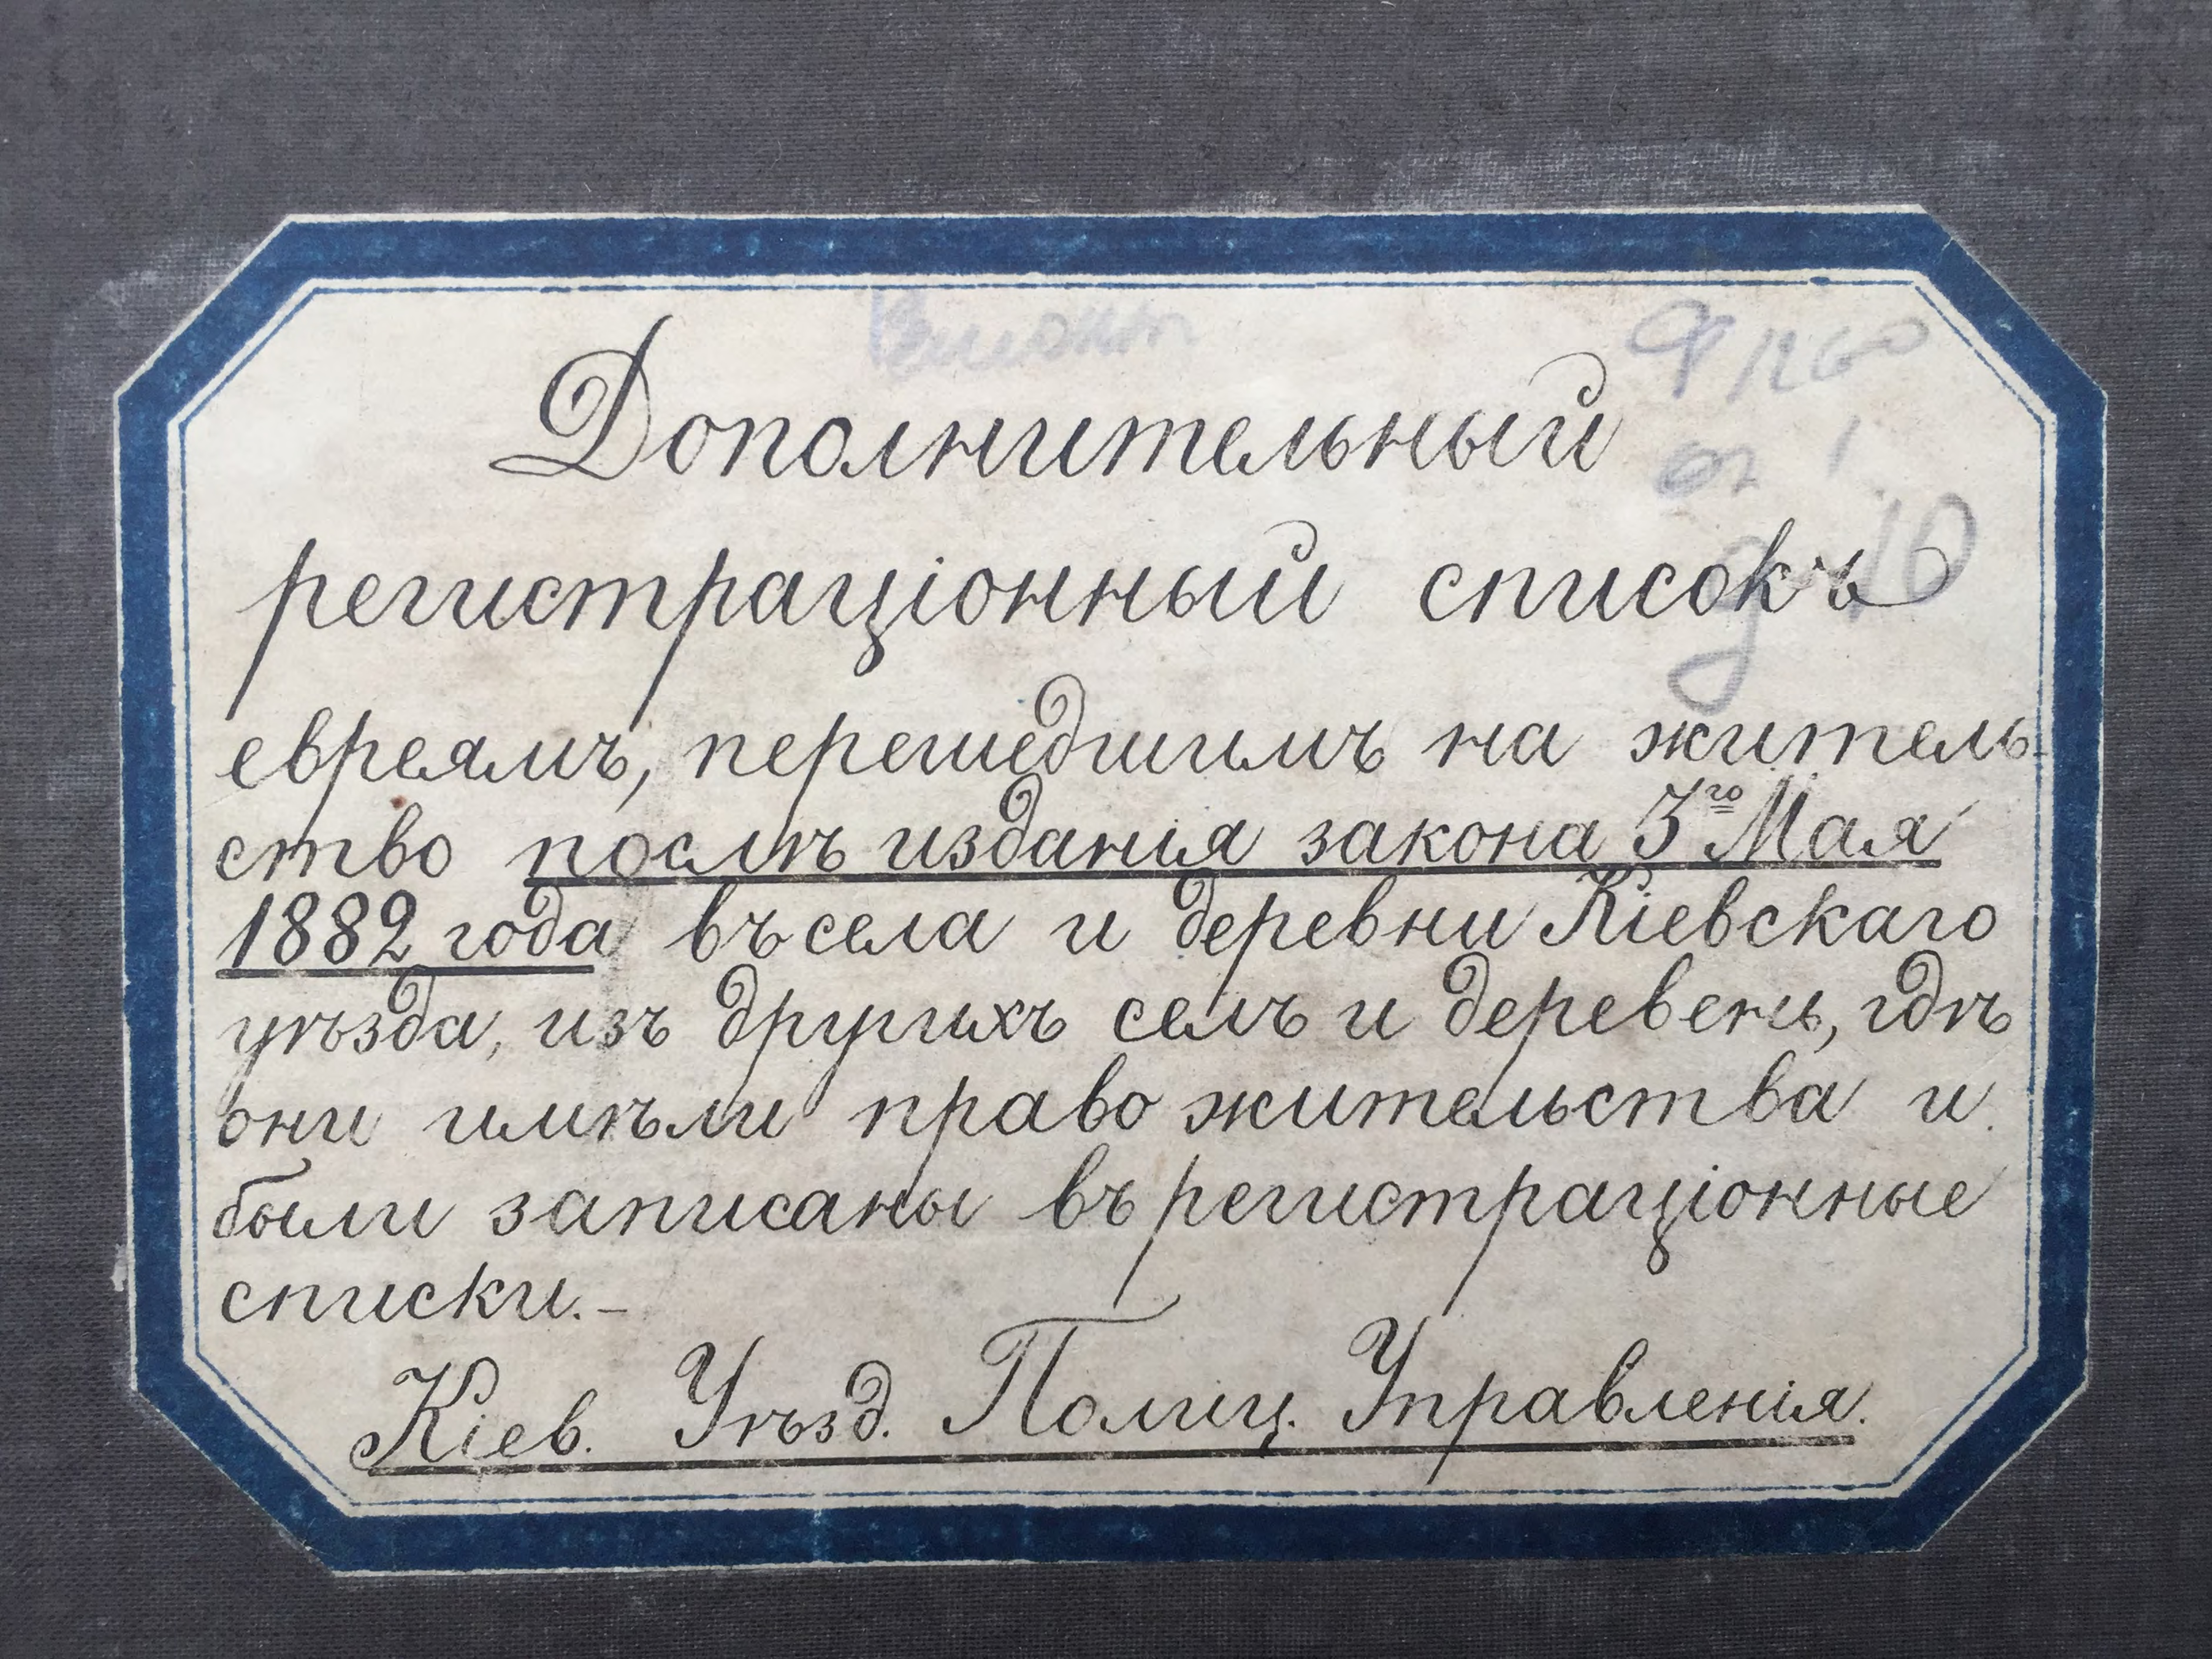 Дополнительный
регистраціонный списокъ
евреямъ, перешедшимъ на житель-
ство послѣ изданія закона 3го Мая
1882 года въ села и деревни Кіевскаго
уѣзда, изъ другихъ селъ и деревень, гдѣ
они имѣли право жительства и
были записаны въ регистраціонные
списки.–
Кіев. Уѣзд. Полиц. Управленія.